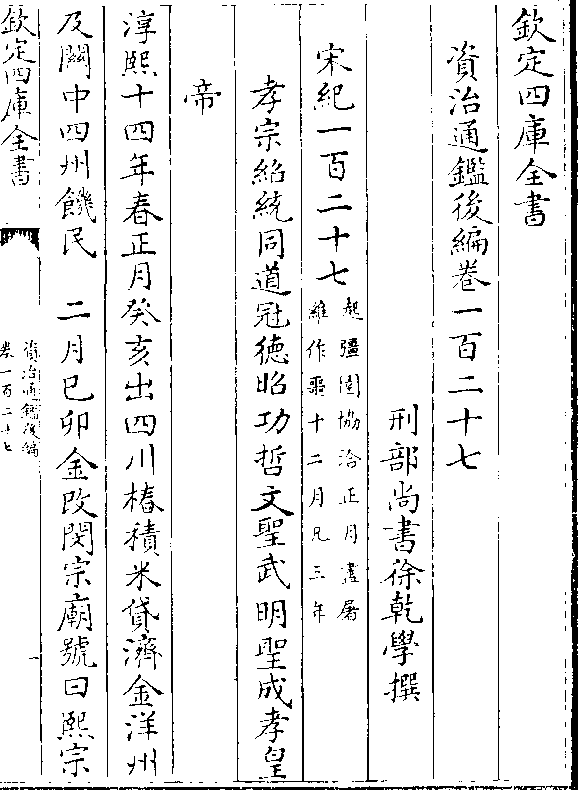 欽定四庫全書
資治通鑑後編卷一百二十七
刑部尚書徐乾學撰
宋紀一百二十七起彊圉協洽正月盡屠維作噩十二月凡三年
孝宗紹統同道冠德昭功哲文聖武明聖成孝皇
帝
淳熙十四年春正月癸亥出四川樁積米貸濟金洋州
及關中四州饑民 二月己卯金改閔宗廟號曰熙宗
欽定四庫全書
資治通鑑後編
卷一百二十七
一